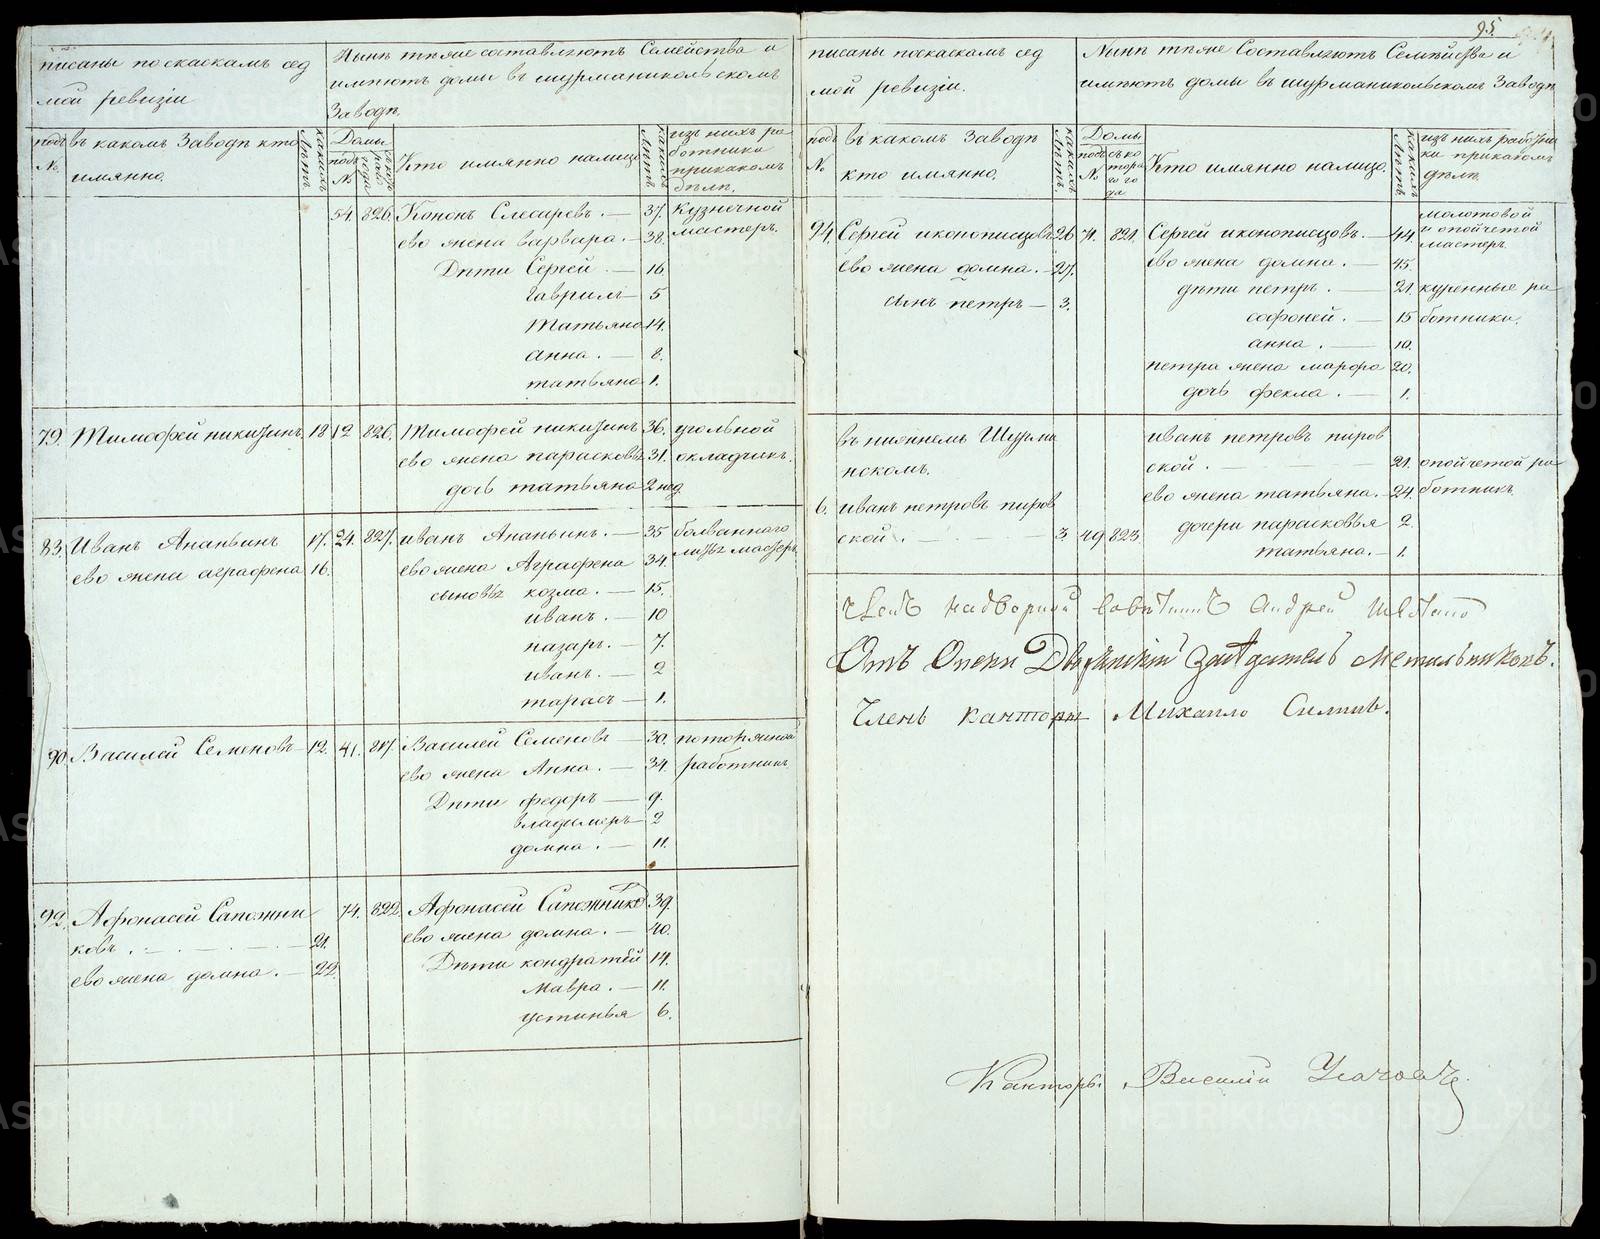 писаны по скаскамъ сед
мой ревизіи
Нынѣ тѣже составляютъ Семейства и
имѣютъ домы въ шурманикольскомъ
Заводѣ
подъ №
въ какомъ Заводѣ кто
имянно.
какихъ лѣтъ
Домы
подъ №
Кто имянно налицо
какихъ лѣтъ
изъ нихъ ра
ботники
при какомъ
дѣлѣ.
54 826 Кононъ Слесаревъ. — 37. кузнечной
ево жена варвара. — 38. мастеръ.
Дѣти Сергей. — 16
гаврило — 5
татьяна 14.
анна. — 8.
татьяна 1.
79. Тимофей никитинъ 18 12 826. Тимофей никитинъ 36. угольной
ево жена парасковья 31. окладчикъ.
дочь татьяна 2 нед
83. Иванъ Ананьинъ 17. 24. 827. иванъ Ананьинъ. — 35 болваннаго
ево жена аграфена 16. ево жена Аграфена 34. мастеръ
сыновья козма. — 15.
иванъ. — 10
назаръ. — 7.
иванъ. — 2
тарасъ — 1.
90. Василей Семеновъ 12. 41. 817. Василей Семеновъ — 30.
ево жена Анна. — 34. работникъ
Дѣти федоръ — 9.
владимеръ — 2
домна. — 11.
92. Афонасей Сапожни 74. 822. Афонасей Сапожников 39.
ковъ. 21. ево жена домна. — 40.
ево жена домна. — 22. Дѣти кондратей 14.
мавра. — 11.
устинья 6.
95
писаны по скаскамъ сед
мой ревизіи.
Нынѣ тѣже Составляютъ Семейства и
имѣютъ домы въ шурманикольскомъ Заводѣ
подъ №
въ какомъ Заводѣ
кто имянно.
какихъ лѣтъ.
Домы
подъ №
съ ко
тора
го го
да
Кто имянно налицо.
какихъ лѣтъ
изъ нихъ работни
ки при какомъ
дѣлѣ.
молотовой
94. Сергей иконописцовъ 26 71. 821. Сергей иконописцовъ. — 44. мастеръ
ево жена домна. — 27. ево жена домна. — 45.
сынъ петръ — 3. дѣти петръ. — 21. куренные ра
софоней. — 15 ботники.
анна. — 10.
петра жена марфа 20.
дочь фекла. — 1.
въ нижнемъ Шурми
нскомъ.
6. иванъ петровъ пиров
ской. 3 49 823.
иванъ петровъ пиров
ской. 21. ра
ево жена татьяна. — 24. ботникъ
дочери парасковья 2.
татьяна. — 1.
Членъ надворной Советникъ Андрей
Отъ Опеки Дворянскій Заседатель Метильниковъ.
Членъ канторы Михайло
Канторъ. Василій